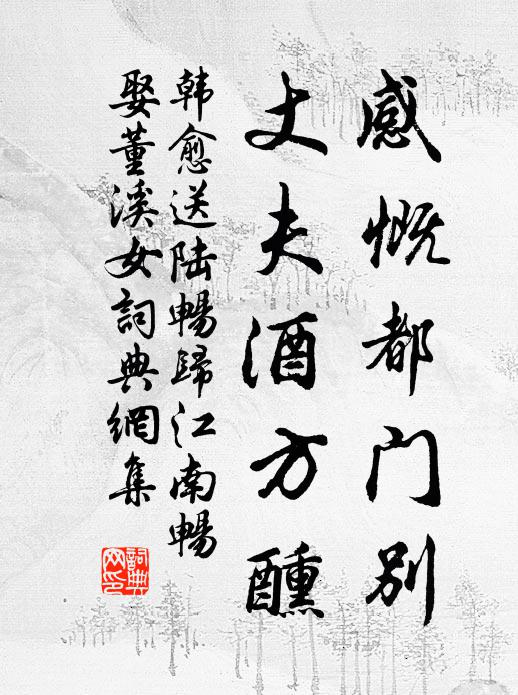 感慨都门别
丈夫酒方醺
韩愈送陆暢歸江南暢
娶董溪女詞典網集
詞典
网印